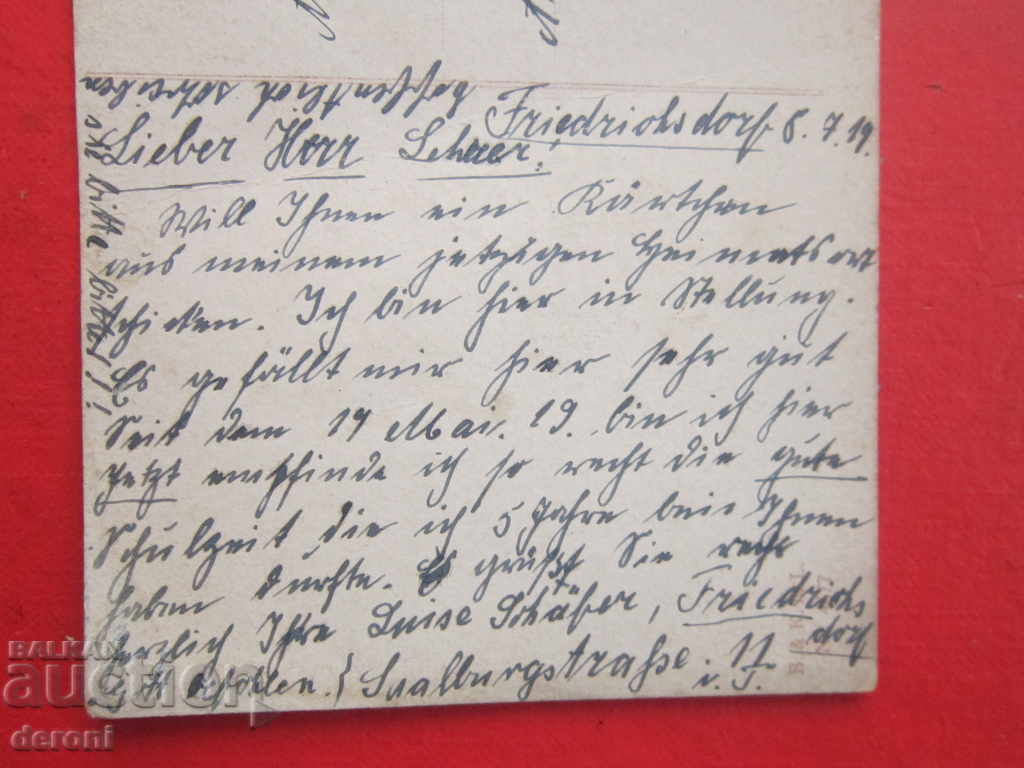 Friedrichsdorf 8. 7. 19.
Lieber Herr Scherer,
Will Ihnen ein Kärtchen
aus meinem jetzigen Heimatsort
schicken. Ich bin hier in Stellung.
Es gefällt mir hier sehr gut
Seit dem 19 Mai. 19. bin ich hier
Jetzt empfinde ich so recht die gute
Schulzeit die ich 5 Jahre bei Ihnen
haben durfte. Es grüßt Sie recht
herzlich Ihre Luise Schäfer, Friedrichs
dorf
Saalburgstrasse. 17
v. T.
bitte bitte!!
schreiben
BALKAN
auction
deroni